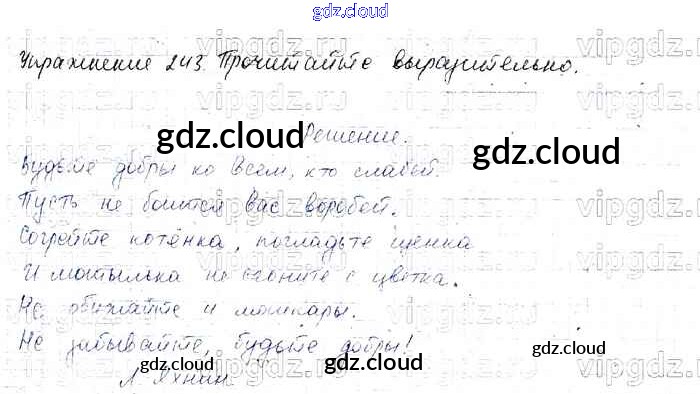 gdz.cloud
Упражнение 243. Прочитайте выразительно.
Решение.
gdz.cloud
gdz.cloud
Будьте добры ко всем, кто слабей.
Пусть не боится вас воробей.
Согрейте котёнка, погладьте щенка
И мотылька не сгоните с цветка.
Не обижайте и мошкары.
Не забывайте, будьте добры!
gdz.cloud
Л. Яхнин
gdz.cloud
gdz.cloud